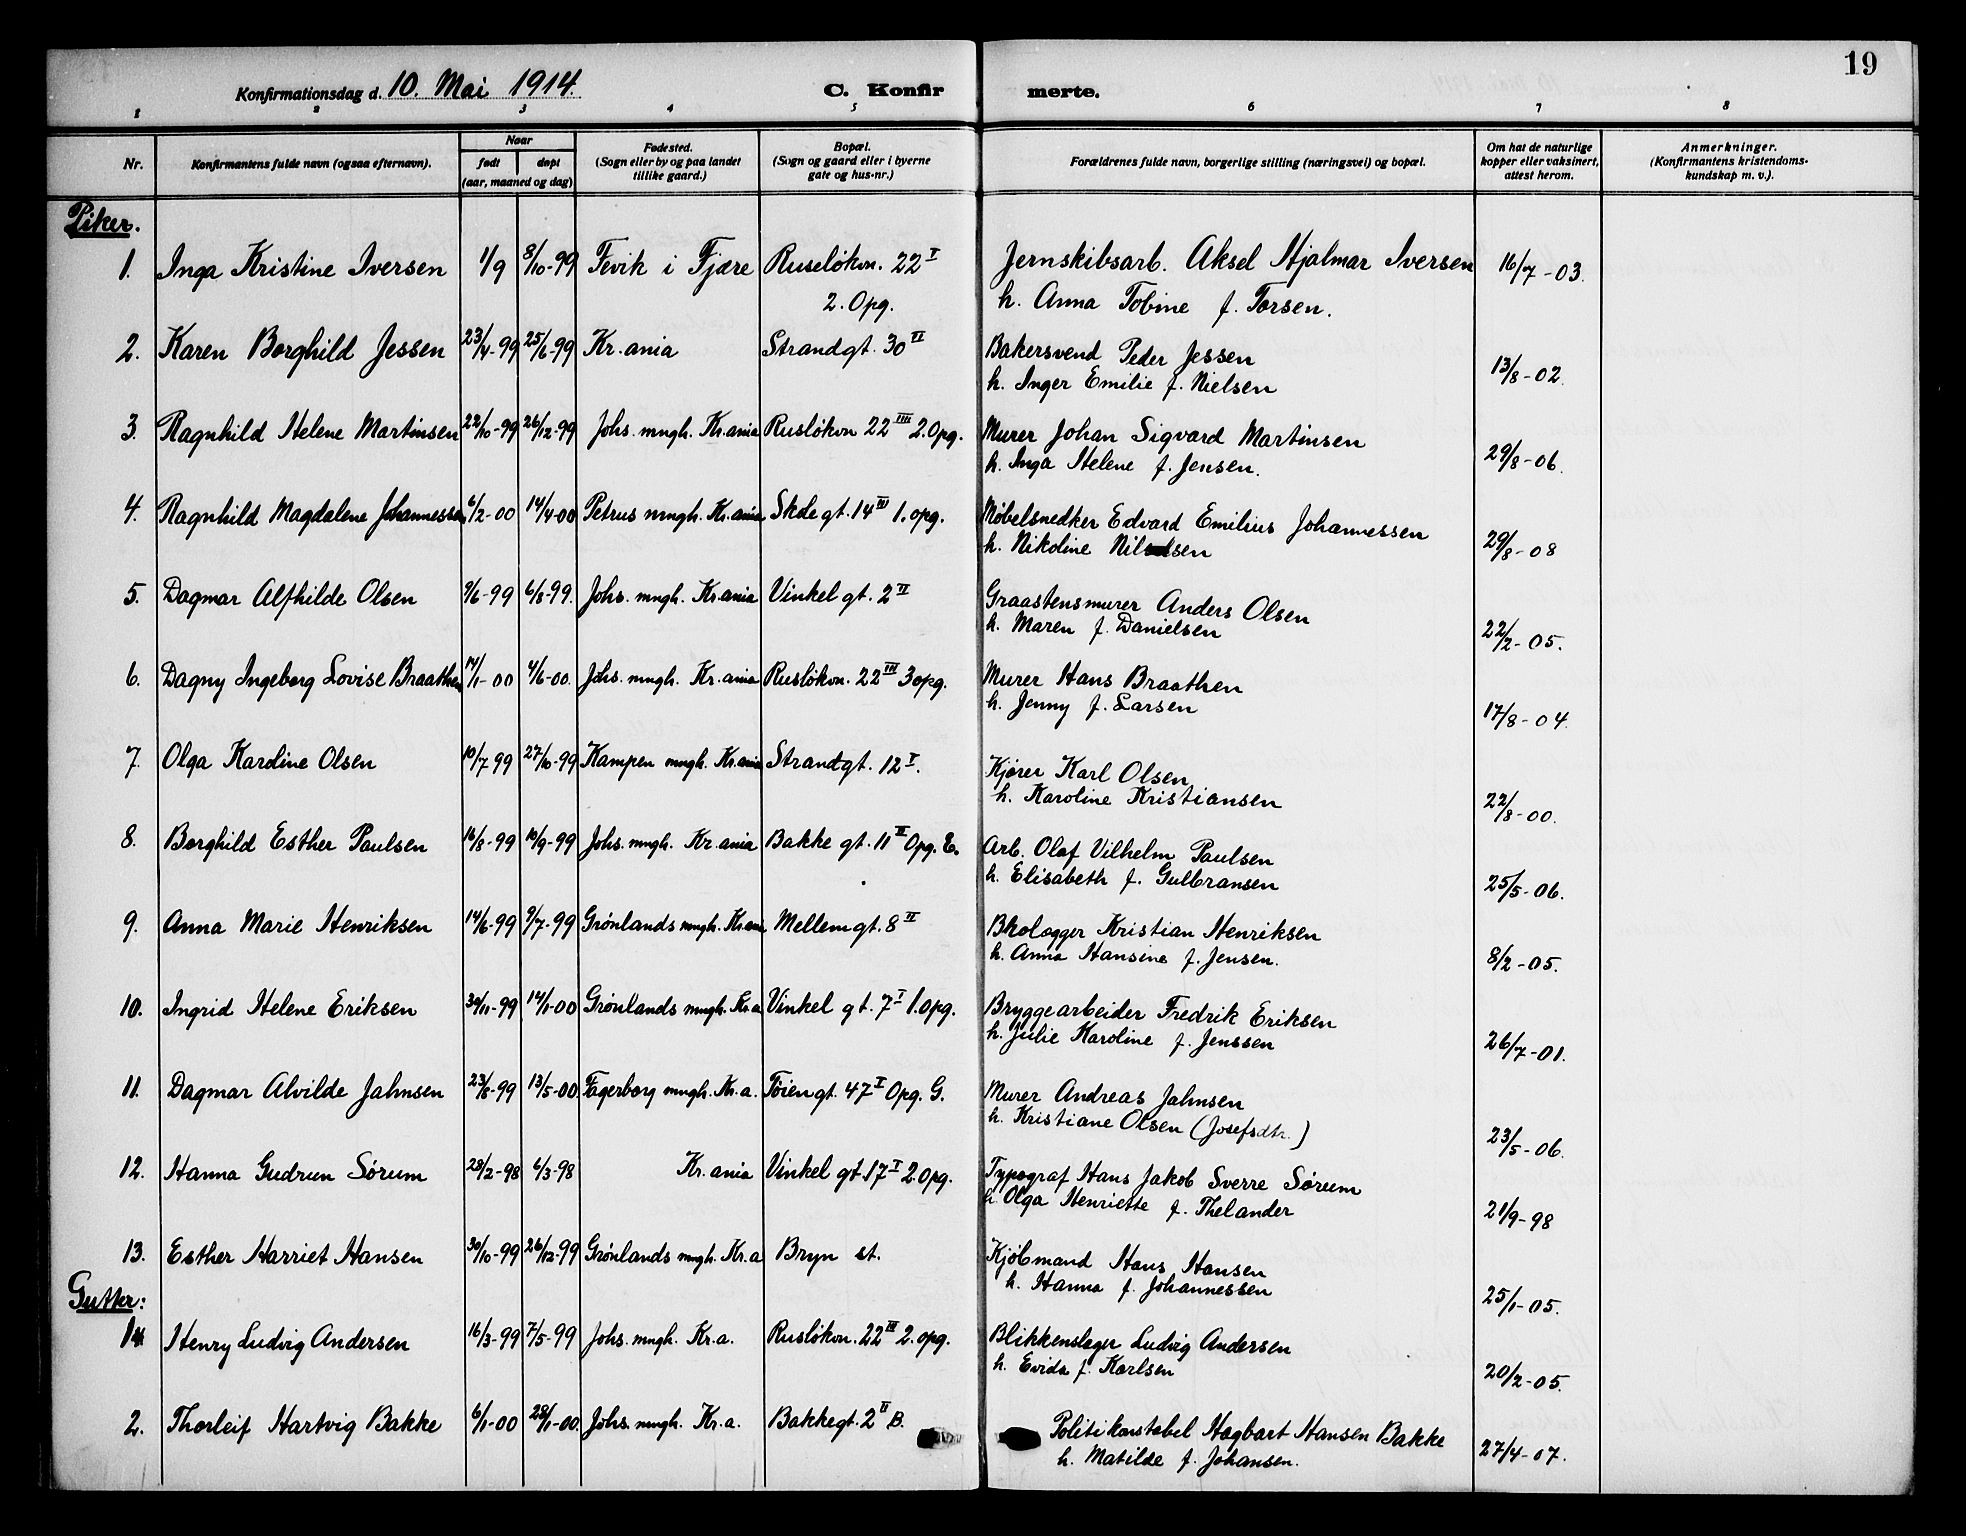 19
Konfirmationsdag d. 10. Mai 1914. C. Konfirmerte.
1 2 3 4 5 6 7 8
Nr. Konfirmantens fulde navn (ogsaa efternavn). Naar født døpt (aar, maaned og dag) Fødested. (Sogn eller by og paa landet tillike gaard.) Bopæl. (Sogn og gaard eller i byerne gate og hus-nr.) Forældrenes fulde navn, borgerlige stilling (næringsvei) og bopæl. Om hat de naturlige kopper eller vaksinert, attest herom. Anmerkninger. (Konfirmantens kristendomskundskap m. v.).
Piker.
1. Inga Kristine Iversen 1/9 8/10-99 Fevik i Fjære Ruseløkvn. 22 I Jernskibsarb. Aksel Hjalmar Iversen 16/7-03.
2. Opg. h. Anna Tobine f. Torsen.
2. Karen Borghild Jessen 23/4-99 25/6-99 Kr.ania Strandgt. 30 II Bakersvend Peder Jessen 13/8-02.
h. Inger Emilie f. Nielsen
3. Ragnhild Helene Martinsen 22/10-99 26/12-99 Johs. mngh. Kr.ania Rusløkvn 22 III 2. Opg. Murer Johan Sigvard Martinsen 29/8-06.
h. Inga Helene f. Jensen.
4. Ragnhild Magdalene Johannessen 6/2-00 14/4-00 Petrus mngh. Kr.ania Skde gt. 14 IV 1. opg. Møbelsnedker Edvard Emilius Johannessen 29/8-08
h. Nikoline Nilsen
5. Dagmar Alfhilde Olsen 9/6-99 6/8-99. Johs. mngh. Kr.ania Vinkel gt. 2 II Graastensmurer Anders Olsen 22/2-05.
h. Maren f. Danielsen
6. Dagny Ingeborg Lovise Braathen 14/1-00 4/6-00. Johs. mngh. Kr.ania Rusløkvn. 22 III 3 opg. Murer Hans Braathen 17/8-04.
h. Jenny f. Larsen
7. Olga Karoline Olsen 10/7 99 27/10-99 Kampen mngh. Kr.ania Strandgt. 12 I. Kjører Karl Olsen 22/8-00.
h. Karoline Kristiansen
8. Borghild Esther Paulsen 16/8-99 10/9-99 Johs. mngh. Kr.ania Bakke gt. 11 II Opg. E. Arb. Olaf Vilhelm Paulsen 25/5-06.
h. Elisabeth f. Gulbransen
9. Anna Marie Henriksen 14/6-99 9/7-99 Grønlands mngh. Kr.ania Mellemgt. 8 II Kristian Henriksen 8/2-05.
h. Anna Hansine f. Jensen.
10. Ingrid Helene Eriksen 30/11-99 14/1-00 Grønlands mngh. Kr.a Vinkel gt. 7 I 1. opg. Bryggearbeider Fredrik Eriksen 26/7-01.
h. Julie Karoline f. Jenssen
11. Dagmar Alvilde Jahnsen 23/8-99 13/5-00. Fagerborg mngh. Kr.a. Tøiengt. 47 I Opg. G. Murer Andreas Jahnsen 23/5-06.
h. Kristiane Olsen (Josefsdtr.)
12. Hanna Gudrun Sørum 28/2-98 6/3-98 Kr.ania Vinkel gt. 17 I 2. opg. Typograf Hans Jakob Sverre Sørum 21/9-98
h. Olga Henriette f. Thelander
13. Esther Harriet Hansen 30/10-99 26/12-99 Grønlands mngh. Kr.a Bryn st. Kjøbmand Hans Hansen 25/1-05.
h. Hanna f. Johannessen
Gutter:
1. Henry Ludvig Andersen 16/3-99 7/5-99 Johs. mngh. Kr.a. Rusløkvn. 22 IV 2. opg. Blikkenslager Ludvig Andersen 20/2-05.
h. Evida f. Karlsen
2. Thorleif Hartvig Bakke 6/1-00 28/1-00. Johs. mngh. Kr.a. Bakkegt. 2 II B. Politikonstabel Hagbart Hansen Bakke 27/4-07.
h. Matilde f. Johansen.